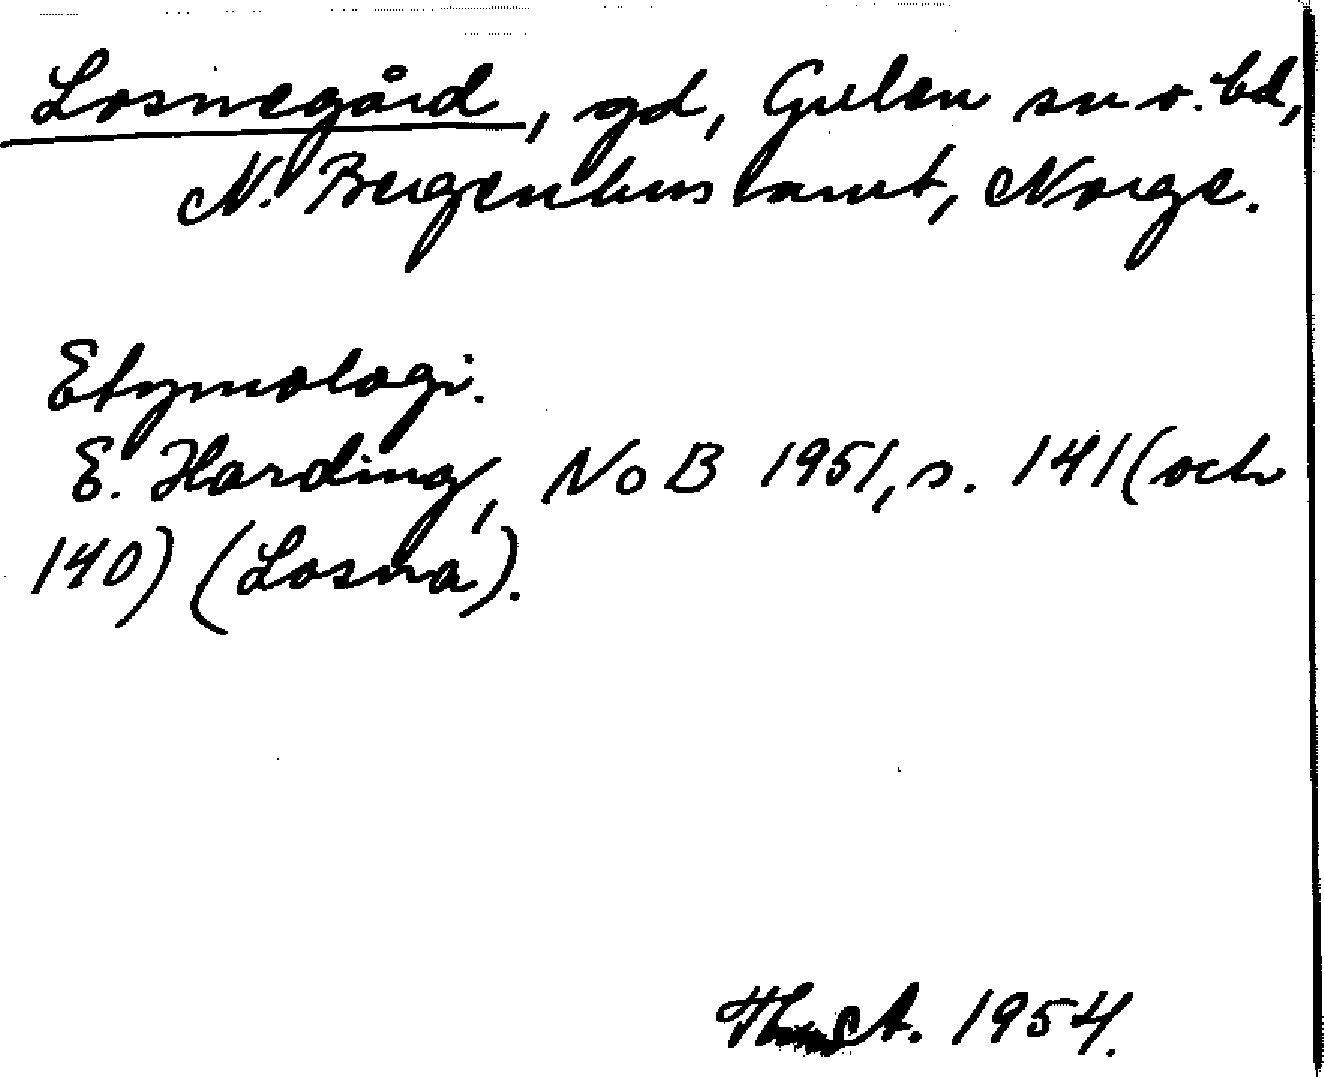 Losnegård, gd, Gulen sn o. bd,
N. Bergenhus amt, Norge.
Etymologi.
E. Harding, NoB 1951, s. 141 (och
140) (Losna).
1954.